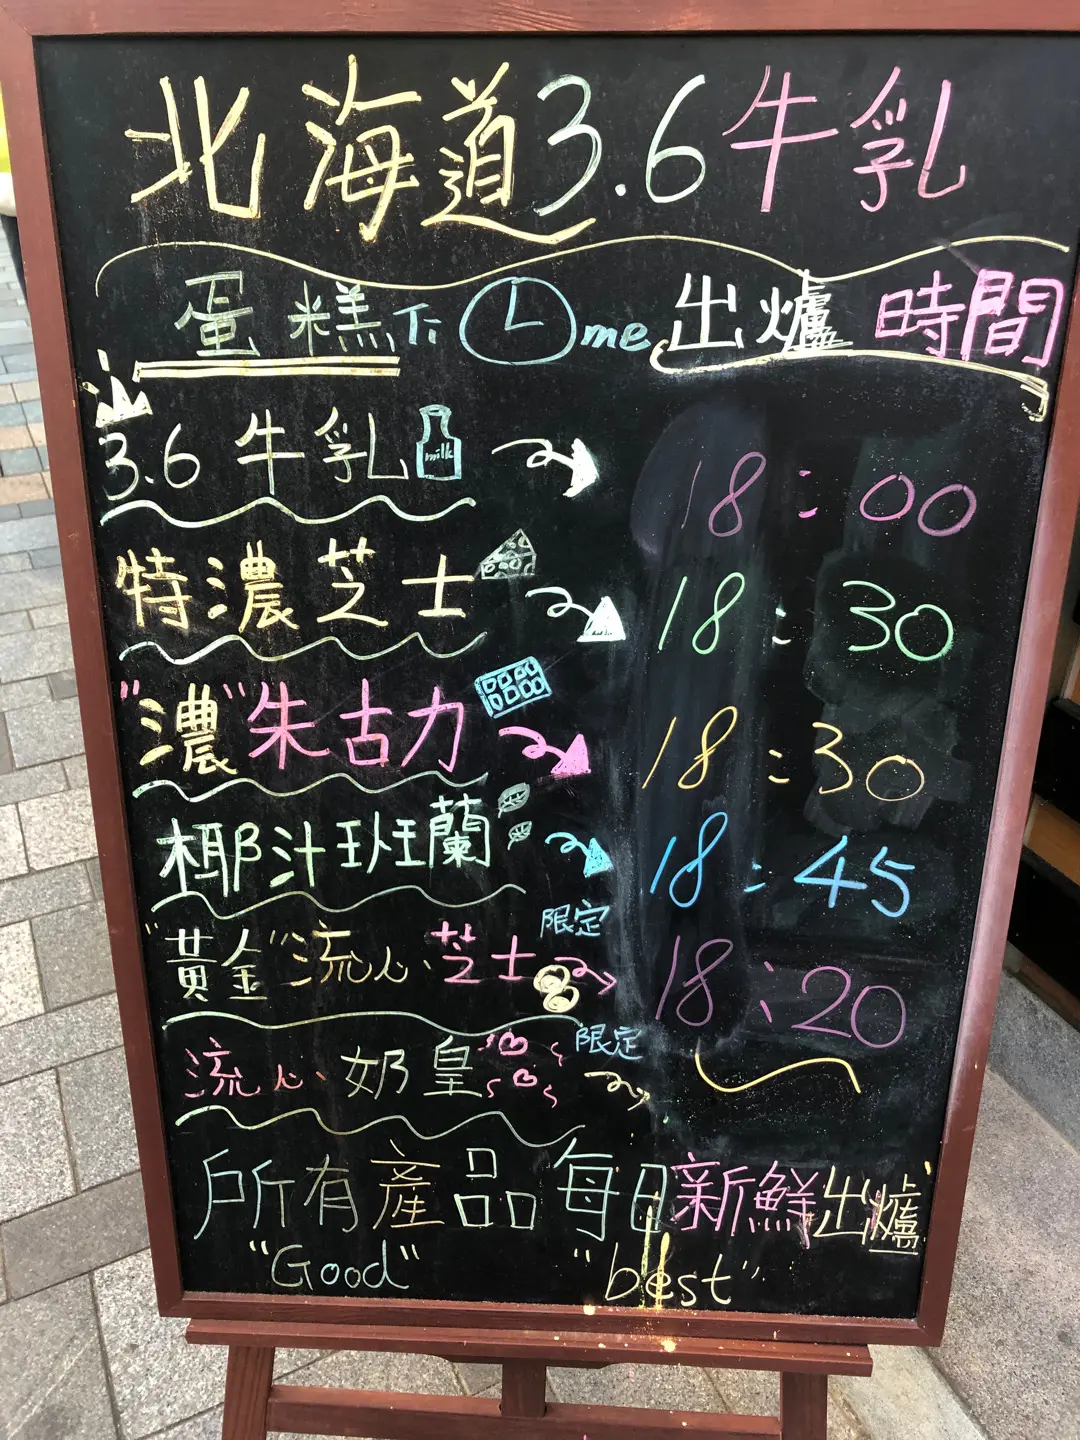 北海道3.6牛乳
蛋糕 Time 出爐時間
3.6牛乳 milk 18:00
特濃芝士 18:30
"濃"朱古力 18:30
椰汁班蘭 18:45
"黃金"流心芝士 限定 18:20
流心奶皇 限定
所有產品每日新鮮出爐
"Good" "best"